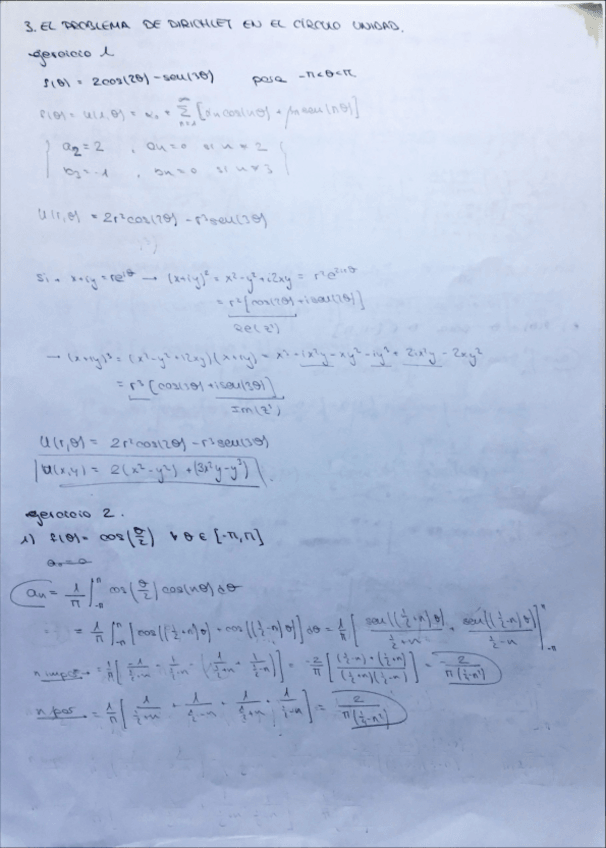 3. EL PROBLEMA DE DIRICHLET EN EL CÍRCULO UNIDAD.
ejercicio 1
f(θ) = 2cos(2θ) - sen(3θ) para -π<θ<π
f(θ) = u(1,θ) = α₀ + Σ [αn cos(nθ) + βn sen(nθ)]
a₂ = 2 , an = 0 si n ≠ 2
b₃ = -1 , bn = 0 si n ≠ 3
U(r,θ) = 2r²cos(2θ) - r³sen(3θ)
Si x+iy = re^iθ → (x+iy)² = x²-y²+i2xy = r²e^2iθ
= r²[cos(2θ)+isen(2θ)]
Re(z²)
→ (x+iy)³ = (x²-y²+i2xy)(x+iy) = x³+ix²y-xy²-iy³+2ix²y-2xy²
= r³[cos(3θ)+isen(3θ)]
Im(z³)
U(r,θ) = 2r²cos(2θ) - r³sen(3θ)
U(x,y) = 2(x²-y²) + (3x²y-y³).
ejercicio 2.
1) f(θ) = cos(θ/2) ∀ θ ∈ [-π,π]
an = 1/π ∫ cos(θ/2) cos(nθ) dθ
= 1/π ∫ [cos((1/2+n)θ) + cos((1/2-n)θ)] dθ = 1/π [ sen((1/2+n)θ) / 1/2+n + sen((1/2-n)θ) / 1/2-n ]
n impar
n par = 1/π [ 1/(1/2+n) + 1/(1/2-n) + 1/(1/2+n) + 1/(1/2-n) ] = 2/π(1/2-n²)